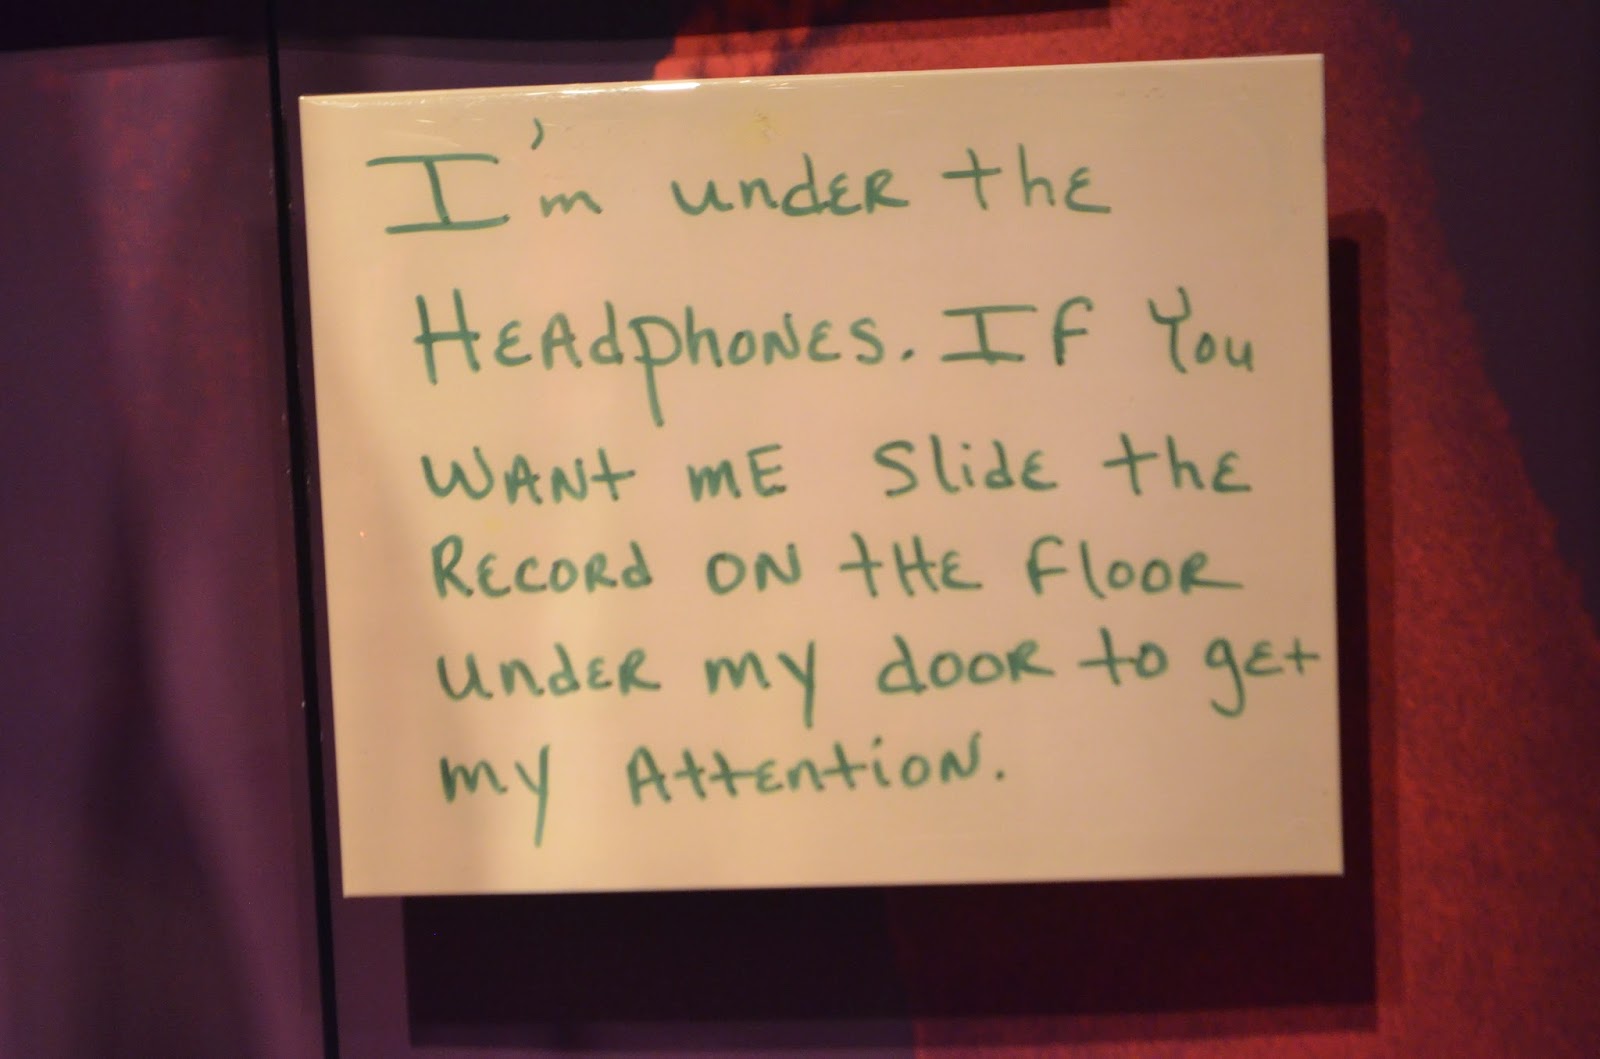 I'm under the
HEAdphONES. If You
WANt mE Slide the
RECORd ON tHE flOOR
UndER my dOOR to gEt
my AttEntioN.